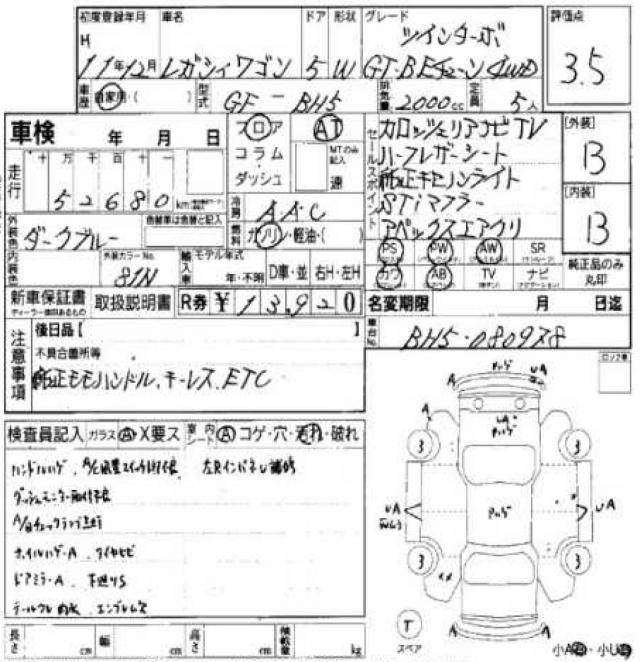 初度登録年月 車名 ドア 形状 グレード 評価点
H ツインターボ
11年12月 レガシィワゴン 5 W GT-BEチューン 4WD 3.5
車歴 自家用・( ) 型式 GF-BH5 排気量 2000cc 定員 5人
車検 年 月 日
フロア AT
コラム・ MTのみ記入
ダッシュ 速
走行 十 万 千 百 十 一
52680km
冷房 A.A.C
燃料 ガソリン・軽油・( )
外装色 ダークブルー 色替車は色替と記入
内装色 外装カラーNo. 81N
輸入車 モデル年式 年・不明 D車・並 右H・左H
セールスポイント
カロッツェリアナビTV
ハーフレザーシート
純正キセノンライト
STiマフラー
アペックスエアクリ
[外装] B
[内装] B
PS PW AW SR
カワ AB TV ナビ
純正品のみ丸印
新車保証書 取扱説明書 R券 ¥13920 名変期限 月 日迄
ディーラー捺印あるもの
注意事項
後日品[ ]
不具合箇所等
純正モモハンドル、キーレス、ETC
車台No. BH5-080978
検査員記入 ガラス A X要ス 室内シート A コゲ・穴・汚れ・破れ
ハンドルハゲ、
左Rインパネビス補修
ダッシュモニター取付不良
A/Bチェックランプ点灯
ホイルハゲ・A、タイヤヒビ
ドアミラーA、下廻りS
長さ cm 幅 cm 高さ cm 積載量 kg
A UA
A A
3 3
UA UA
3 3
A A
T
スペア